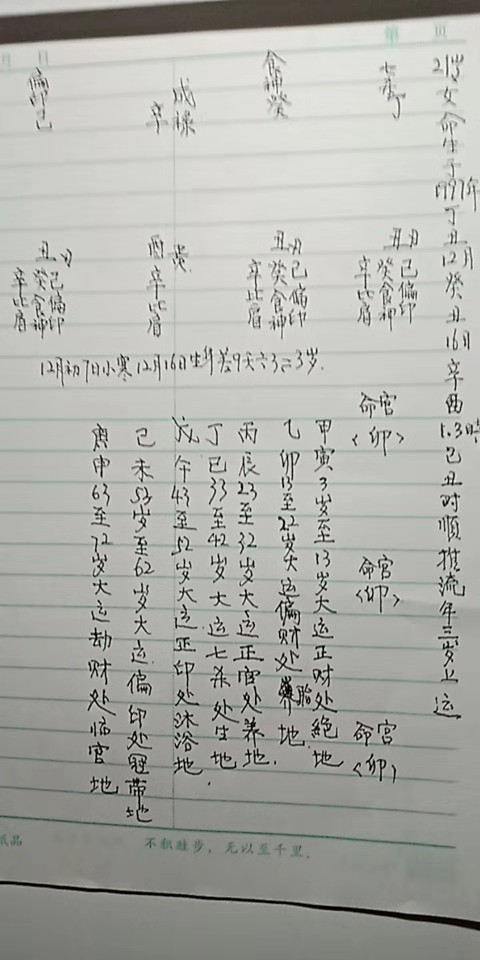 第 页
月 日
21岁女命生于1997年丁丑12月癸丑16日辛酉1.3時己丑时順推流年三岁上运
七杀丁
食神癸
戌禄
辛
偏印己
丑月
己偏印
癸食神
辛比肩
丑月
己偏印
癸食神
辛比肩
酉
辛比肩
丑月
己偏印
癸食神
辛比肩
12月初7日小寒12月16日生
命宫
<卯>
命宫
<卯>
命宫
<卯>
甲寅3岁至13岁大运正财处絕地
乙卯13至22岁大运偏财处胎地.
丙辰23至32岁大运正官处养地.
丁巳33至42岁大运七杀处生地.
戊午43至52岁大运正印处沐浴地
己未53岁至62岁大运偏印处冠带地
庚申63至72岁大运劫财处临官地
纸品
不积跬步，无以至千里。